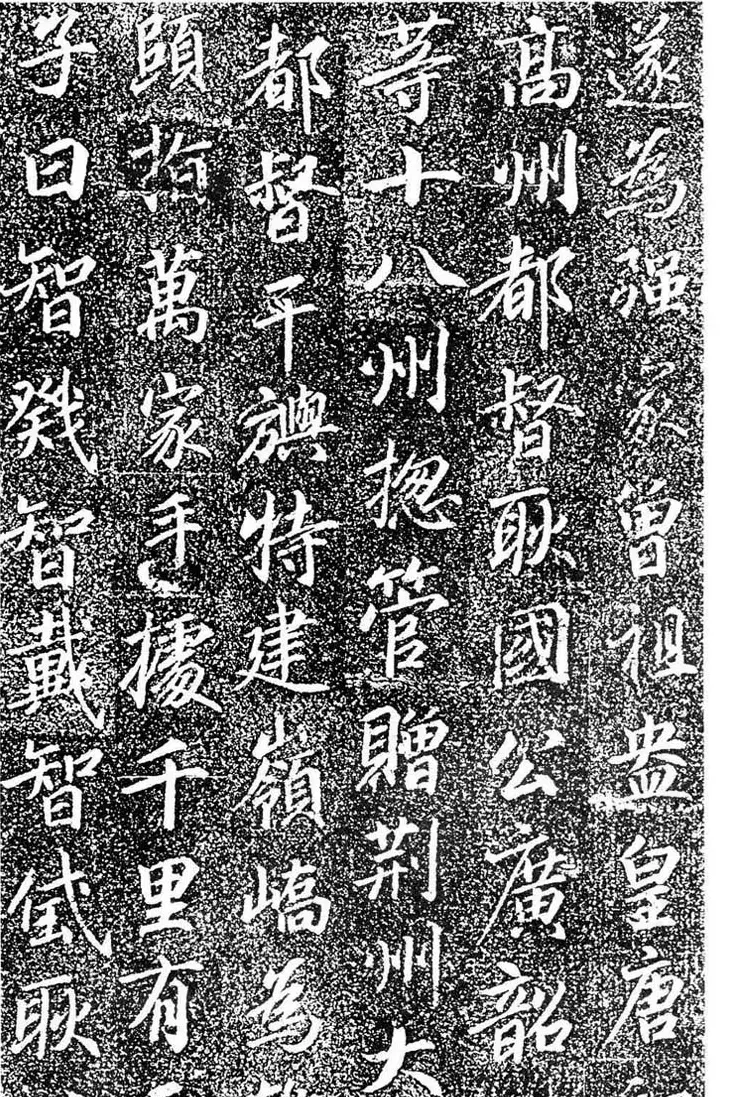 遂為强家曾祖盎皇唐
高州都督耿國公廣韶
等十八州揔管贈荊州大
都督平旟特建嶺嶠為
頤指萬家手據千里有
子曰智戣智戴智耿